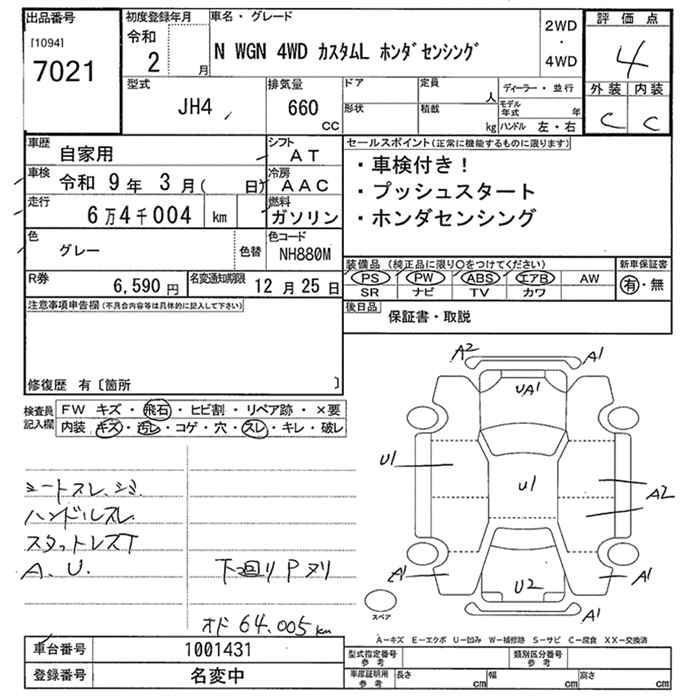 出品番号
[1094]
7021
初度登録年月
令和
2
月
車名・グレード
N WGN 4WD カスタムL ホンダセンシング
2WD
・
4WD
評価点
4
外装 内装
C C
型式
JH4
排気量
660
CC
ドア
形状
定員
人
積載
kg
ディーラー・並行
モデル年式
年
ハンドル 左・右
車歴
自家用
シフト
AT
車検
令和 9年 3月( 日)
冷房
AAC
走行
6万4千004 km
燃料
ガソリン
色
グレー
色替
色コード
NH880M
R券
6,590円
名変通知期限
12月25日
セールスポイント(正常に機能するものに限ります)
・車検付き!
・プッシュスタート
・ホンダセンシング
装備品(純正品に限り○をつけてください)
PS PW ABS エアB AW
SR ナビ TV カワ
新車保証書
有・無
後日品
保証書・取説
注意事項申告欄(不具合内容等は具体的に記入して下さい)
修復歴 有〔箇所 〕
検査員記入欄
FW キズ・飛石・ヒビ割・リペア跡・×要
内装・キズ・汚レ・コゲ・穴・スレ・キレ・破レ
シートスレ、シミ
ハンドルスレ
スタットレスT
A、U、
下回りPヌリ
オド 64.005km
A2
A1
UA1
U1
U1
A2
A1
U2
A1
A1
スペア
A−キズ E−エクボ U−凹み W−補修跡 S−サビ C−腐食 XX−交換済
車台番号
1001431
登録番号
名変中
型式指定番号
参考
類別区分番号
参考
車庫証明用
参考
長さ
cm
幅
cm
高さ
cm